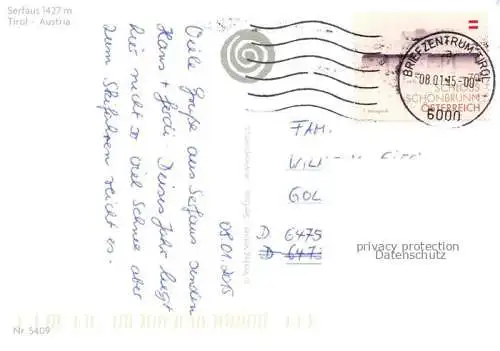 Serfaus 1427 m
Tirol - Austria
Viele Grüße aus Serfaus senden
Hans + Heidi. Dieses Jahr liegt
hier nicht so viel Schnee aber
zum Skifahren reicht es.
08.01.2015
BRIEFZENTRUM TIROL
08.01.15-00
6000
SCHLOSS
SCHÖNBRUNN
ÖSTERREICH
FAM.
GOL
D 6475
D 647
privacy protection
Datenschutz
Nr. 5409